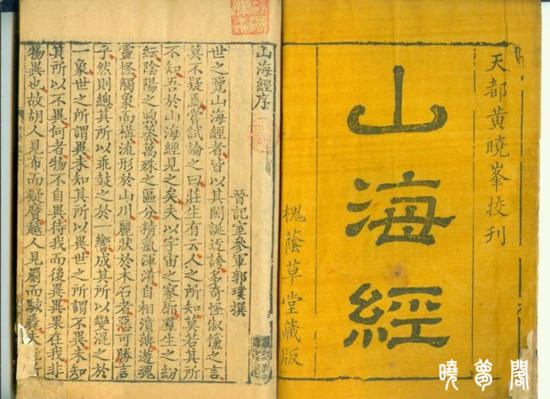 天都黄曉峯挍刊
山海經
槐蔭草堂藏版
山海經序
晉記室參軍郭璞撰
世之覽山海經者皆以其閎誕迂誇多奇怪俶儻之言
莫不疑焉嘗試論之曰莊生有云人之所知莫若其所
不知吾於山海經見之矣夫以宇宙之寥廓羣生之紛
紜陰陽之煦蒸萬殊之區分精氣渾淆自相濆薄遊魂
靈怪觸象而構流形於山川麗狀於木石者惡可勝言
乎然則總其所以乖鼓之於一響成其所以變混之於
一象世之所謂異未知其所以異世之所謂不異未知
其所以不異何者物不自異待我而後異異果在我非
物異也故胡人見布而疑黂越人見罽而駭毳夫
曉夢閣